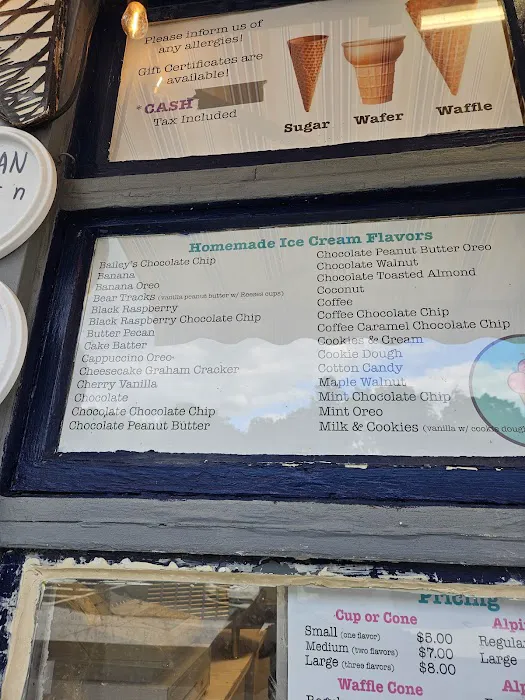 Please inform us of
any allergies!
Gift Certificates are
available!
*CASH
Tax Included
Sugar
Wafer
Waffle
AN
n
Homemade Ice Cream Flavors
Bailey's Chocolate Chip
Banana
Banana Oreo
Bear Tracks (vanilla peanut butter w/ Reeses cups)
Black Raspberry
Black Raspberry Chocolate Chip
Butter Pecan
Cake Batter
Cappuccino Oreo
Cheesecake Graham Cracker
Cherry Vanilla
Chocolate
Chocolate Chocolate Chip
Chocolate Peanut Butter
Chocolate Peanut Butter Oreo
Chocolate Walnut
Chocolate Toasted Almond
Coconut
Coffee
Coffee Chocolate Chip
Coffee Caramel Chocolate Chip
Cookies & Cream
Cookie Dough
Cotton Candy
Maple Walnut
Mint Chocolate Chip
Mint Oreo
Milk & Cookies (vanilla w/ cookie doug
Pricing
Cup or Cone
Small (one flavor) $5.00
Medium (two flavors) $7.00
Large (three flavors) $8.00
Waffle Cone
Alpi
Regula
Large
Al